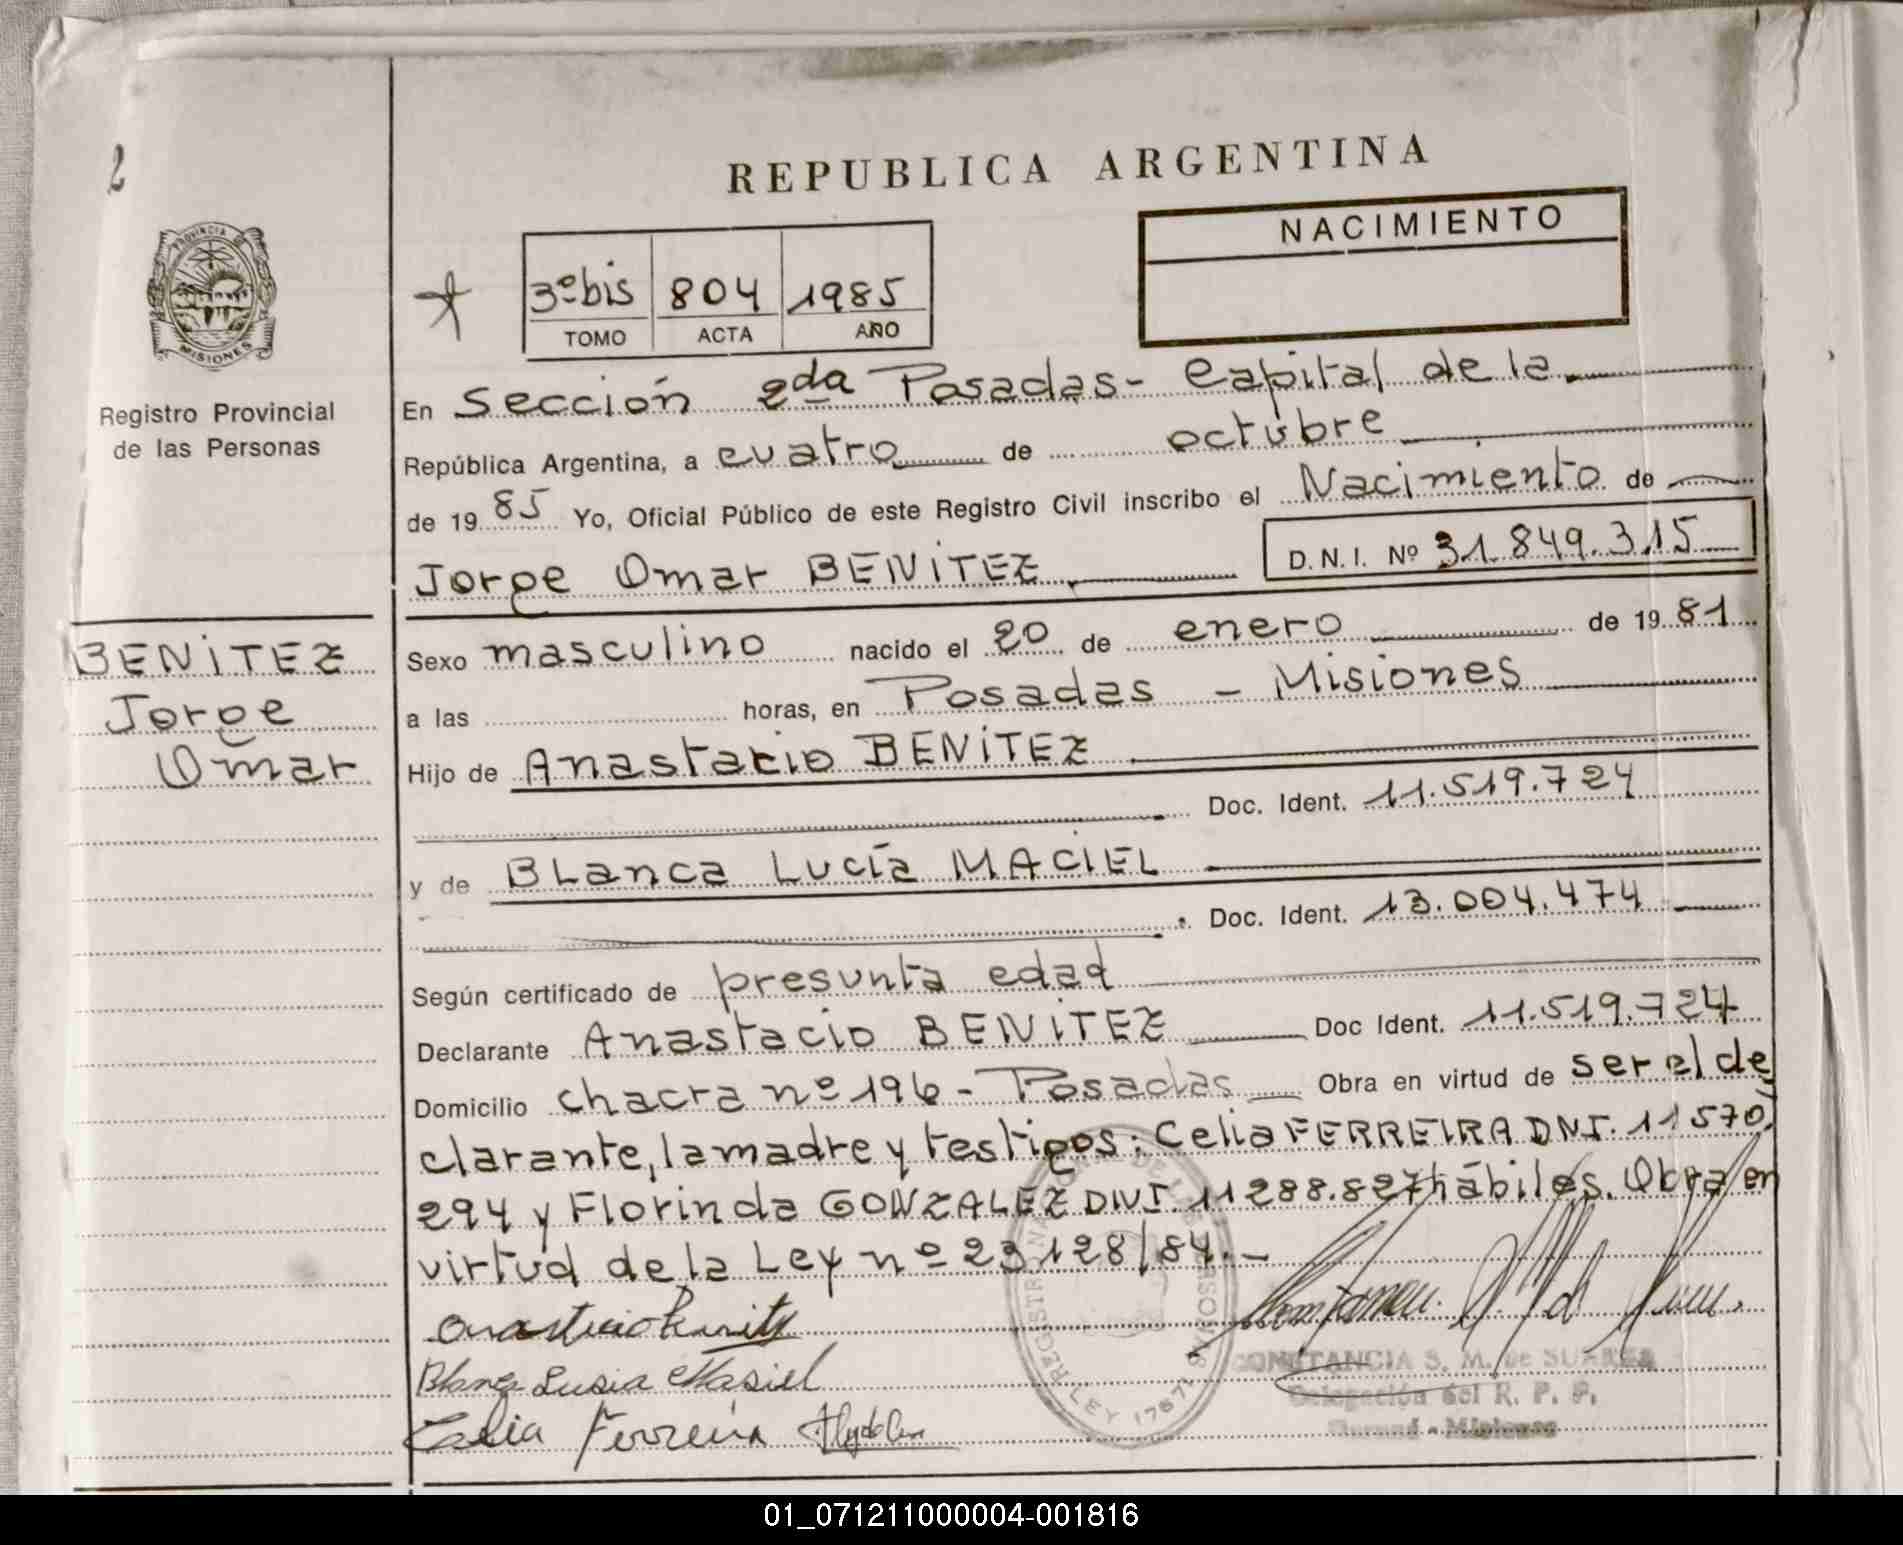 2
REPUBLICA ARGENTINA
NACIMIENTO
PROVINCIA DE
MISIONES
3º bis 804 1985
TOMO ACTA AÑO
Registro Provincial
de las Personas
En Sección 2da Posadas - Capital de la
República Argentina, a cuatro de octubre
de 1985 Yo, Oficial Público de este Registro Civil inscribo el Nacimiento de
Jorge Omar BENITEZ D.N.I. Nº 31.849.315
BENITEZ
Jorge
Omar
Sexo masculino nacido el 20 de enero de 1981
a las horas, en Posadas - Misiones
Hijo de Anastacio BENITEZ
Doc. Ident. 11.519.724
y de Blanca Lucía MACIEL
Doc. Ident. 13.004.474
Según certificado de presunta edad
Declarante Anastacio BENITEZ Doc Ident. 11.519.724
Domicilio chacra nº 196 - Posadas Obra en virtud de ser el de
clarante, la madre y testigos: Celia FERREIRA DNI. 11 570.
294 y Florinda GONZALEZ DNI. 11288.827 hábiles. Obra en
virtud de la Ley nº 23128/84.-
Blanca Lusia Masiel
Celia Ferreira
REGISTRO NACIONAL DE LAS PERSONAS
LEY 17671
CONSTANCIA S. M. de SUAREZ
Delegación del R. P. P.
Misiones
01_071211000004-001816